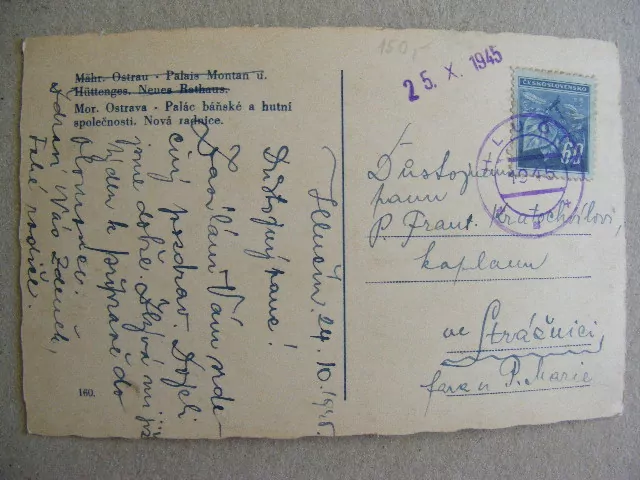 Mähr. Ostrau - Palais Montan u.
Hüttenges. Neues Rathaus.
Mor. Ostrava - Palác báňské a hutní
společnosti. Nová radnice.
150,-
25. X. 1945
ČESKOSLOVENSKO
60
1945
Důstojnému
panu
P. Frant. Kratochvílovi,
kaplanu
ve Strážnici,
fara u P. Marie
Hlučín. 24. 10. 1945.
Důstojný pane!
Zasílám Vám srde-
čný pozdrav. Dojeli
jsme dobře. Zbývá mi již
týden k přípravě do
Olomouce.
Zdraví Vás Zdeněk,
Také rodiče.
160.